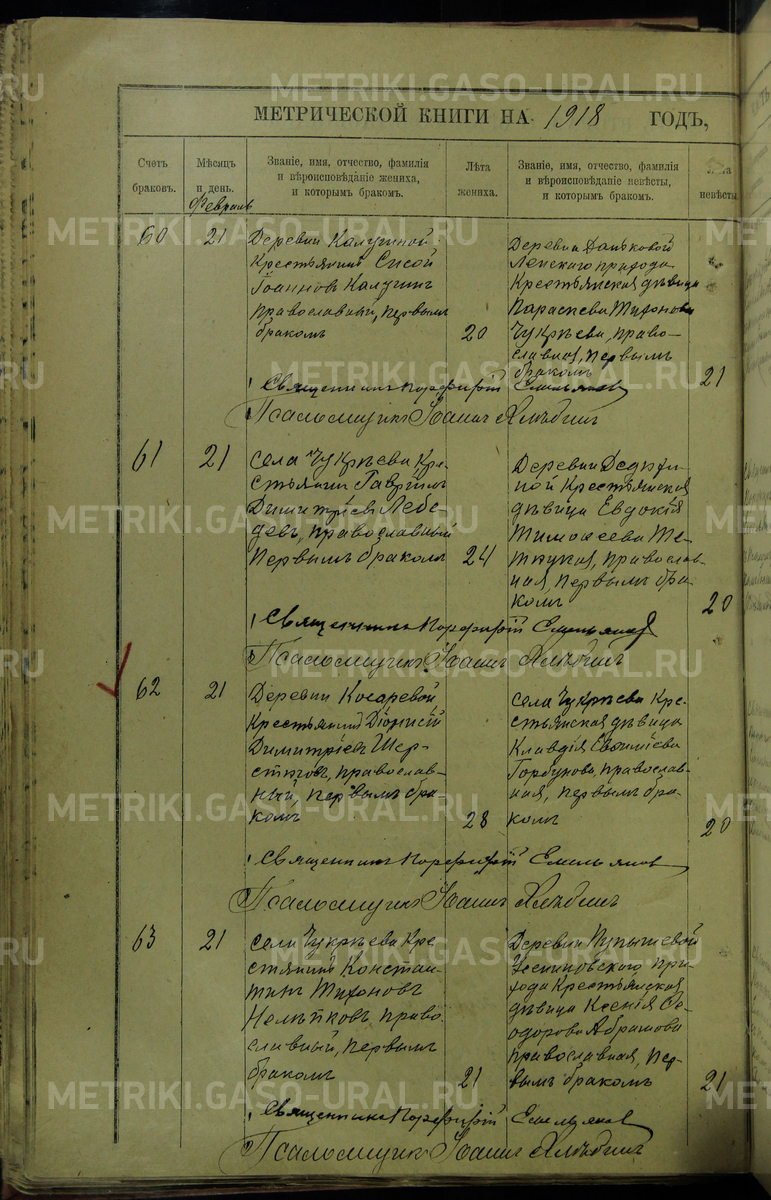 METRIKI.GASO-URAL.RU
МЕТРИЧЕСКОЙ КНИГИ НА 1918 ГОДЪ,
Счетъ браковъ.
Мѣсяцъ и день.
Званіе, имя, отчество, фамилія и вѣроисповѣданіе жениха, и которымъ бракомъ.
Лѣта жениха.
Званіе, имя, отчество, фамилія и вѣроисповѣданіе невѣсты, и которымъ бракомъ.
невѣсты
Февраль
60
21
Деревни Калугиной
крестьянинъ Сисой
Іоанновъ Калугинъ
православный, первымъ
бракомъ
20
Деревни
прихода
крестьянская дѣвица
Параскева Тихонова
Чукрѣева, право-
славная, первымъ
бракомъ
21
Священникъ Порфирій Емельяновъ
Псаломщикъ Іоаннъ Хлѣбинъ
61
21
села Чукрѣева кре-
стьянинъ Гавріилъ
Димитріевъ Лебе-
девъ, православный
первымъ бракомъ
24
Деревни
крестьянская
дѣвица Евдокія
Тимоѳеева
православ-
ная, первымъ бра-
комъ
20
Священникъ Порфирій Емельяновъ
Псаломщикъ Іоаннъ Хлѣбинъ
62
21
Деревни Косаревой
крестьянинъ Діонисій
Димитріевъ Шер-
стневъ, православ-
ный, первымъ бра-
комъ
28
села Чукрѣева кре-
стьянская дѣвица
Клавдія
Горбунова, православ-
ная, первымъ бра-
комъ
20
Священникъ Порфирій Емельяновъ
Псаломщикъ Іоаннъ Хлѣбинъ
63
21
села Чукрѣева кре
стянинъ Констан-
тинъ Тихоновъ
право
славный, первымъ
бракомъ
21
Деревни
при-
хода крестьянская
дѣвица Ксенія Ѳе-
одорова Абрамова
православная, пер-
вымъ бракомъ
21
Священникъ Порфирій Емельяновъ
Псаломщикъ Іоаннъ Хлѣбинъ